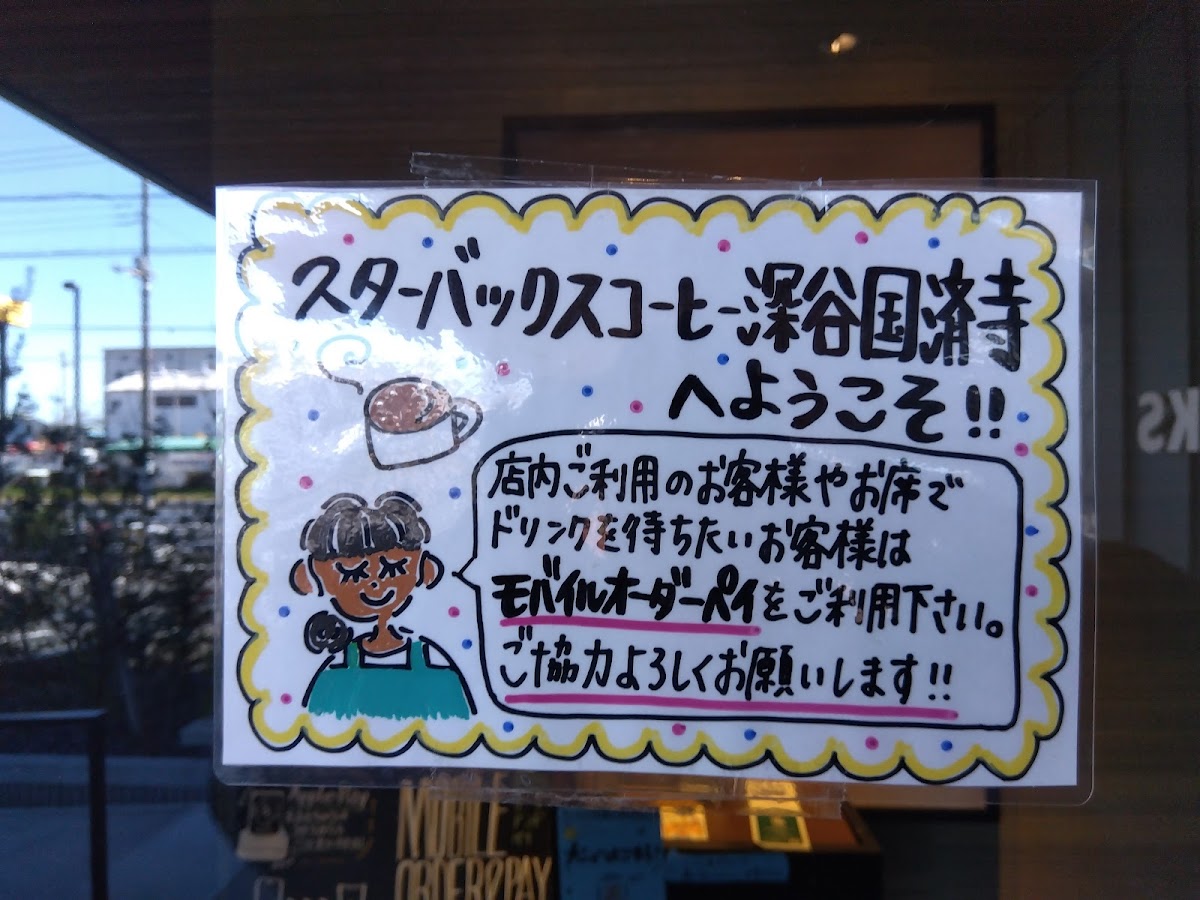 スターバックスコーヒー深谷国済寺
へようこそ!!
店内ご利用のお客様やお席で
ドリンクを待ちたいお客様は
モバイルオーダーペイをご利用下さい。
ご協力よろしくお願いします!!
KS
MOBILE
ORDER&PAY